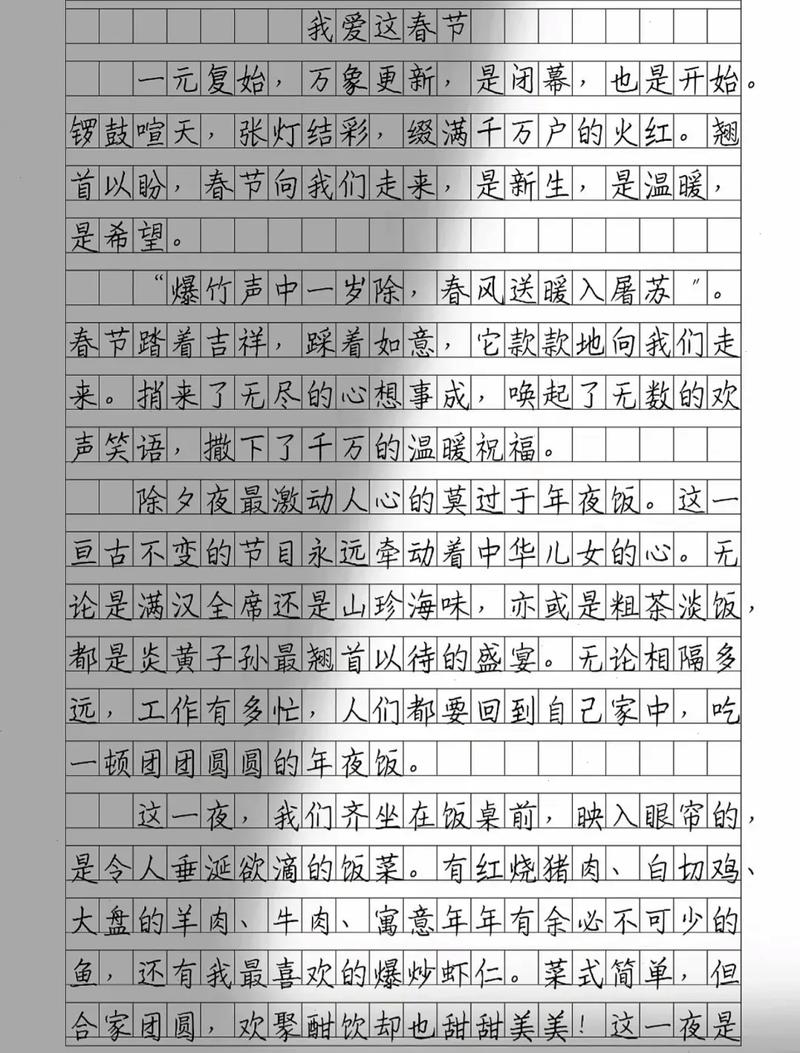 我爱这春节
一元复始，万象更新，是闭幕，也是开始。
锣鼓喧天，张灯结彩，缀满千万户的火红。翘
首以盼，春节向我们走来，是新生，是温暖，
是希望。
“爆竹声中一岁除，春风送暖入屠苏”。
春节踏着吉祥，踩着如意，它款款地向我们走
来。捎来了无尽的心想事成，唤起了无数的欢
声笑语，撒下了千万的温暖祝福。
除夕夜最激动人心的莫过于年夜饭。这一
亘古不变的节目永远牵动着中华儿女的心。无
论是满汉全席还是山珍海味，亦或是粗茶淡饭，
都是炎黄子孙最翘首以待的盛宴。无论相隔多
远，工作有多忙，人们都要回到自己家中，吃
一顿团团圆圆的年夜饭。
这一夜，我们齐坐在饭桌前，映入眼帘的，
是令人垂涎欲滴的饭菜。有红烧猪肉、白切鸡、
大盘的羊肉、牛肉、寓意年年有余必不可少的
鱼，还有我最喜欢的爆炒虾仁。菜式简单，但
合家团圆，欢聚酣饮却也甜甜美美！这一夜是